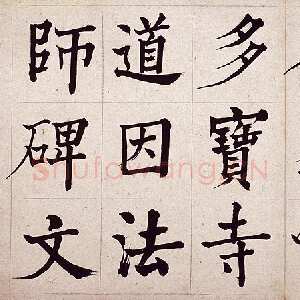 多寶寺
道因法
師碑文
ShufawangCN